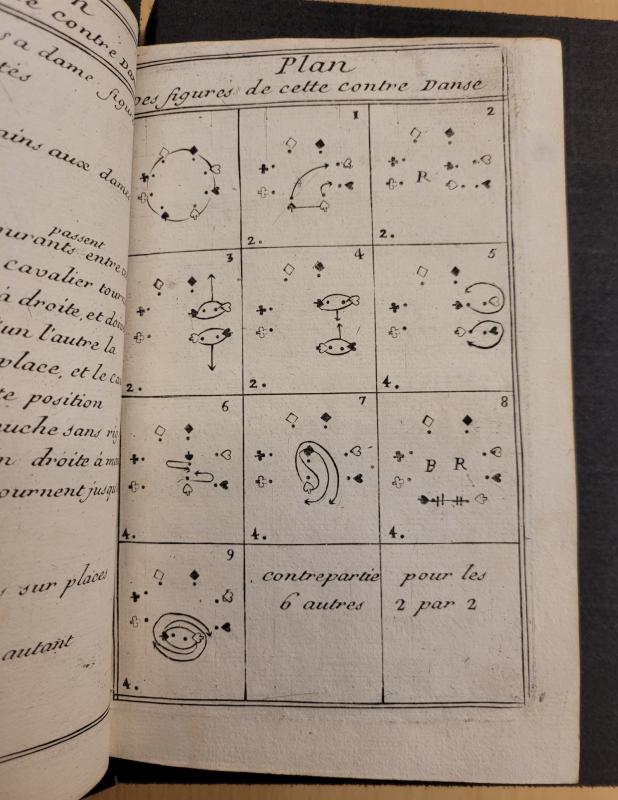 contre Dan
s a dame figu
tés
ains aux dames
passent
entre
cavalier tourn
à droite, et do
l'un l'autre la
place, et le ca
te position
uche sans rig
n droite à m
tournent jusqu
s sur places
autant
Plan
Des figures de cette contre Danse
1
2
2.
R
2.
3
4
5
2.
2.
4.
6
7
8
B R
4.
4.
4.
9
contrepartie pour les
6 autres 2 par 2
4.